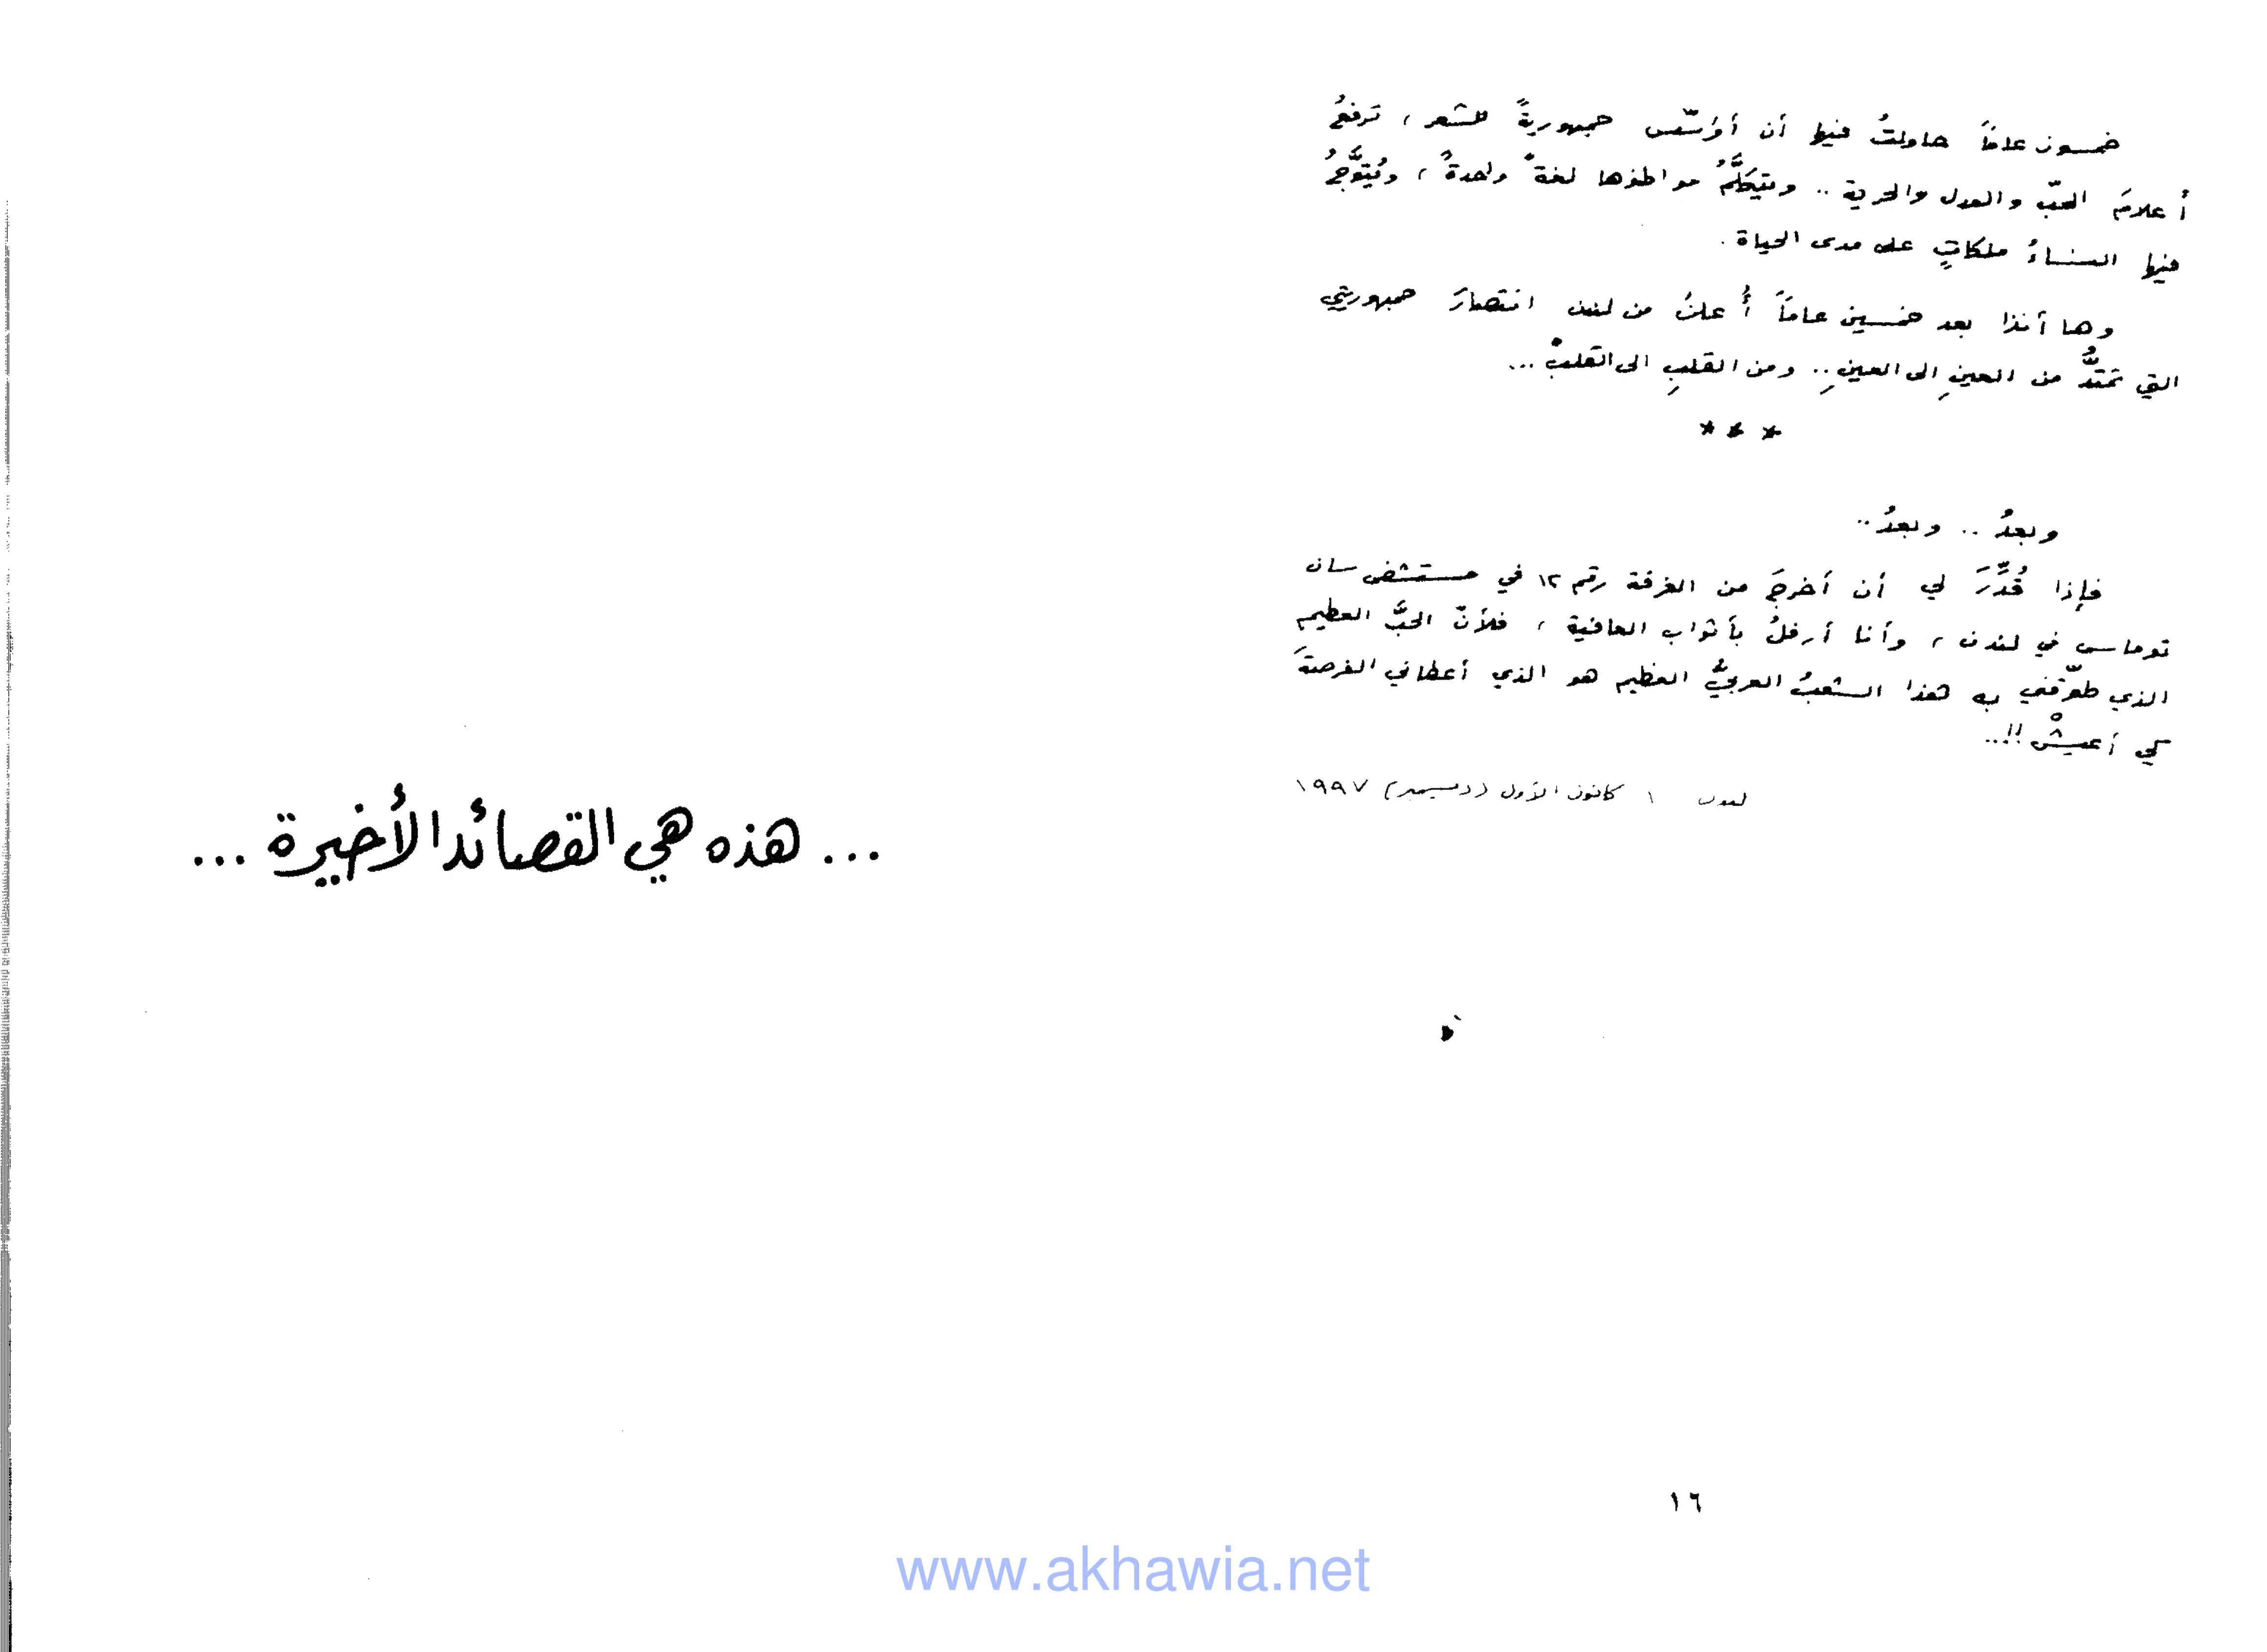 خمسون عاماً حاولتُ فيها أن أؤسّس جمهوريةً للشعر ، تَرفعُ
أعلامَ الحبّ والعدل والحرية .. ويتكلَّمُ مواطنوها لغةً واحدةً ، وتُتوَّجُ
فيها النساءُ ملكاتٍ على مدى الحياة .
وها أنذا بعد خمسين عاماً أُعلنُ من لندن انتصارَ جمهوريتي
التي تمتدُّ من العينِ إلى العينِ .. ومن القلبِ إلى القلبْ ...
* * *
وبعدُ .. وبعدُ ..
فإذا قُدِّرَ لي أن أخرجَ من الغرفة رقم ١٢ في مستشفى سان
توماس في لندن ، وأنا أرفلُ بأثواب العافية ، فلأنّ الحبَّ العظيم
الذي طوّقني به هذا الشعبُ العربيُّ العظيم هو الذي أعطاني الفرصةَ
كي أعيشْ !!..
لندن ١ كانون الأول (ديسمبر) ١٩٩٧
١٦
... هذه هي القصائد الأخيرة ...
www.akhawia.net